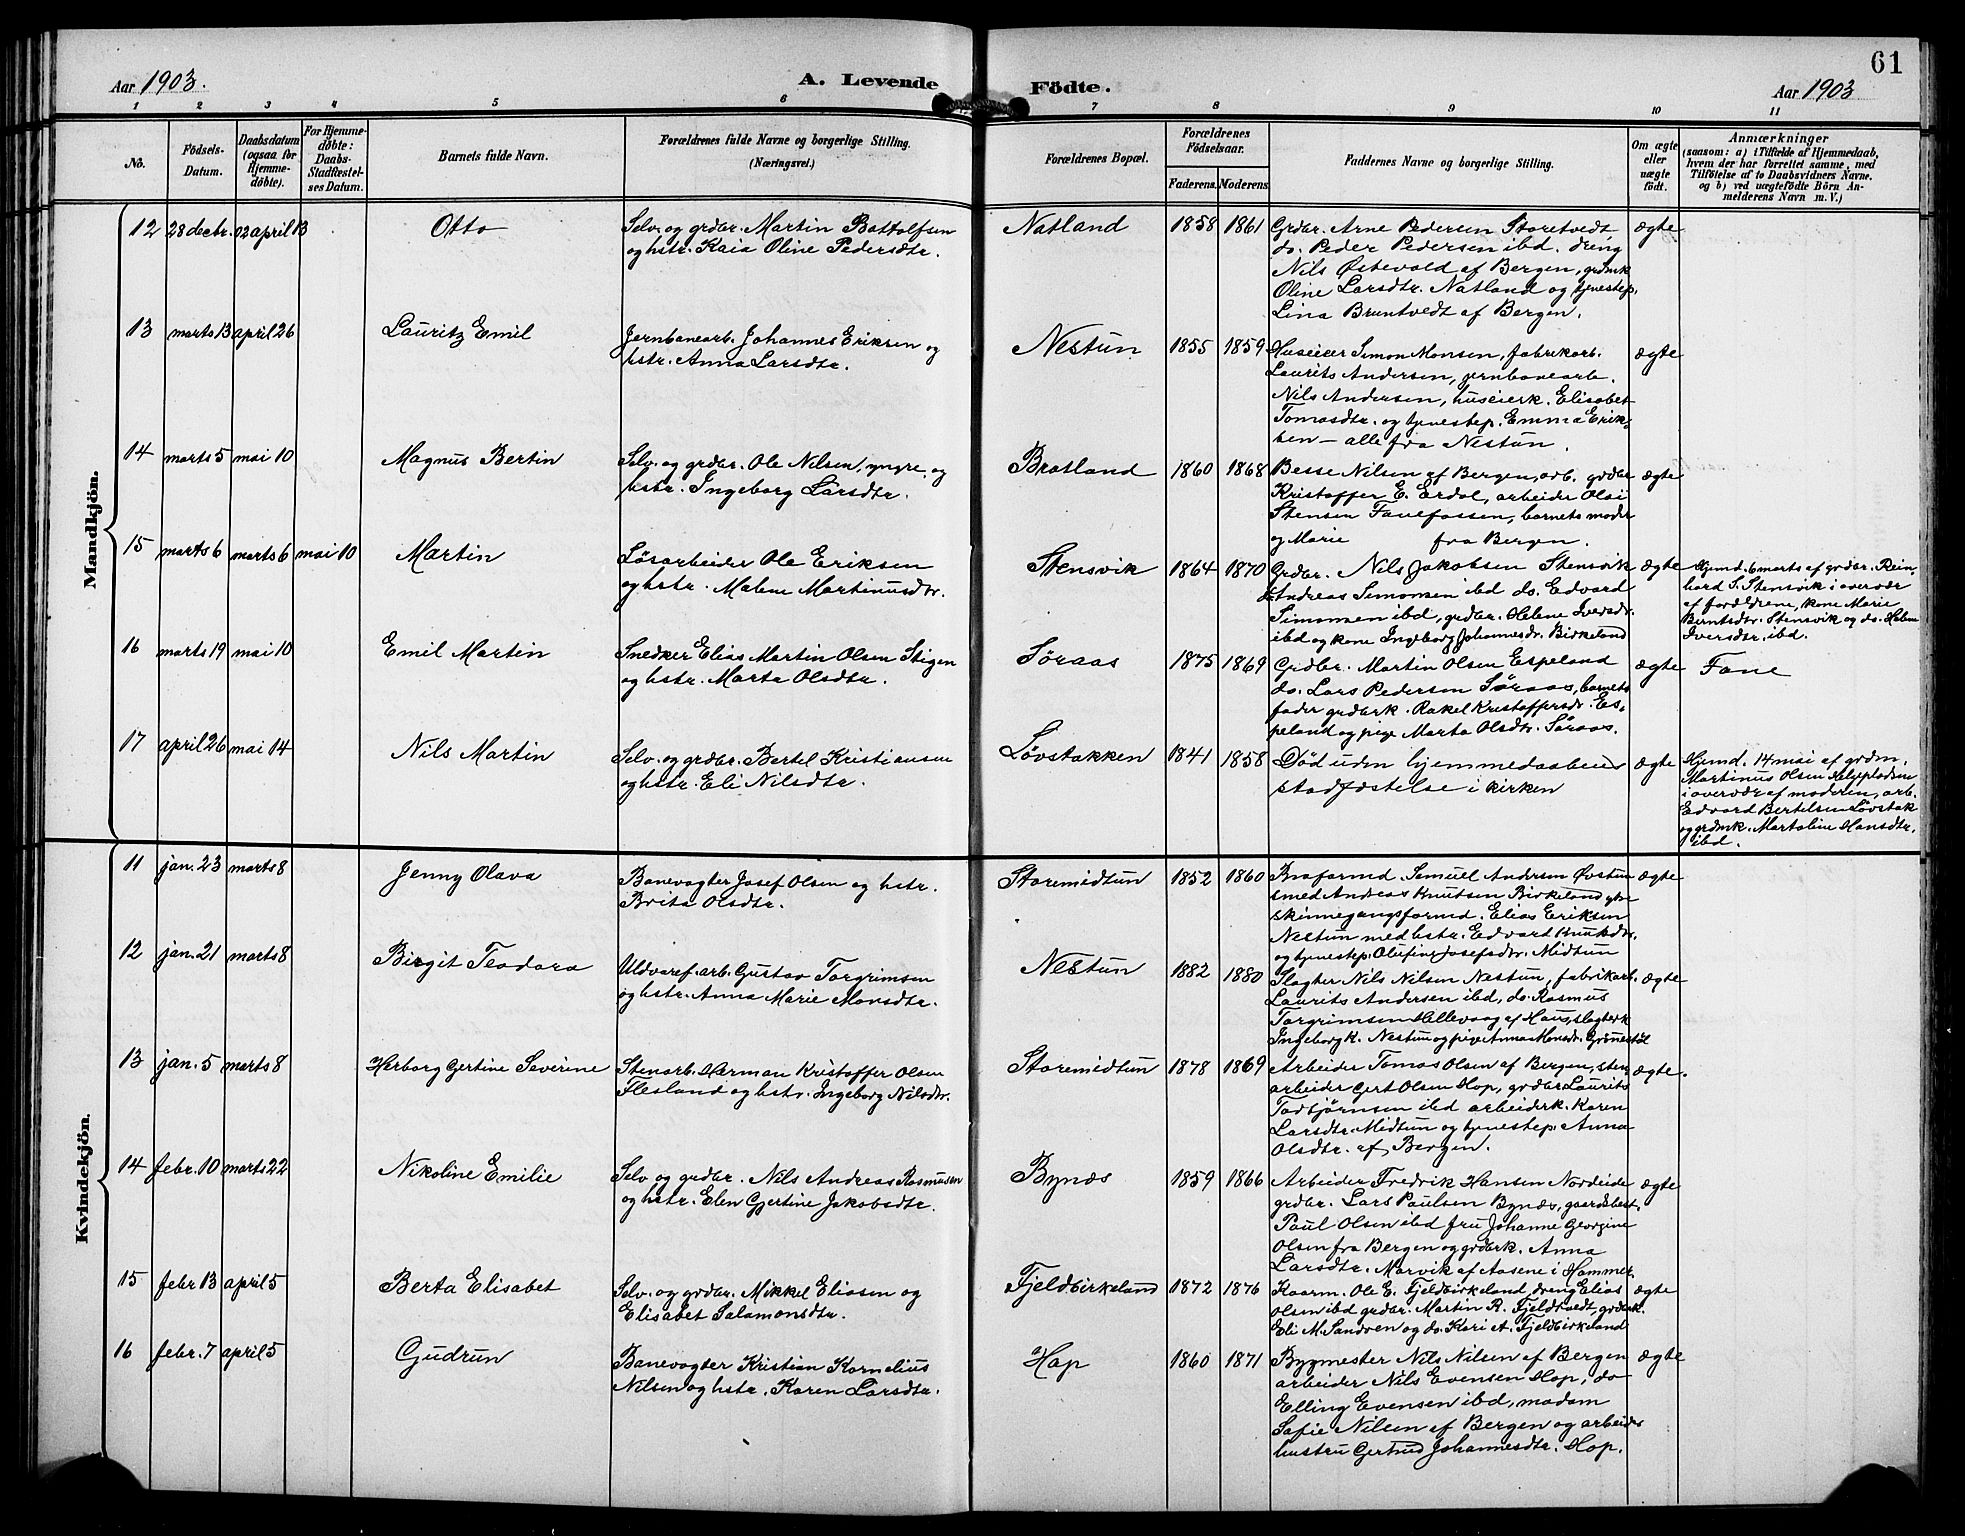 61
Aar 1903.
A. Levende
Födte.
Aar 1903
1 2 3 4 5 6 7 8 9 10 11
No.
Födsels-
Datum.
Daabsdatum
(ogsaa for
Hjemme-
döbte).
For Hjemme-
döbte:
Daabs-
Stadfæstel-
ses Datum.
Barnets fulde Navn.
Forældrenes fulde Navne og borgerlige Stilling.
(Næringsvei.)
Forældrenes Bopæl.
Forældrenes
Födselsaar.
Faderens. Moderens.
Faddernes Navne og borgerlige Stilling.
Om ægte
eller
uægte
födt.
Anmærkninger
(saasom: a) i Tilfælde af Hjemmedaab,
hvem der har forrettet samme, med
Tilföielse af to Daabsvidners Navne.
og b) ved uægtefödte Börn An-
melderens Navn m. V.)
Mandkjön.
12 28 decbr. 02 april 13 Otto
Selv. og grdbr. Martin Bottolfsen
og hstr. Kaia Oline Pedersdtr.
Natland 1858 1861
Grdbr. Arne Pedersen Storetvedt
do. Peder Pedersen ibd. dreng
Nils Østevold af Bergen, grdmk
Oline Larsdtr. Natland og tjenestep.
Lina Bruntvedt af Bergen.
ægte
13 marts 13 april 26 Lauritz Emil
Jernbanearb. Johannes Eriksen og
hstr. Anna Larsdtr.
Nestun 1855 1859
Huseier Simon Monsen, fabrikarb.
Laurits Andersen, jernbanearb.
Nils Andersen, huseierk. Elisabet
Tomasdtr. og tjenestep. Emma Erik-
sen – alle fra Nestun.
ægte
14 marts 5 mai 10 Magnus Bertin
Selv. og grdbr. Ole Nilsen, yngre, og
hstr. Ingeborg Larsdtr.
Bratland 1860 1868
Besse Nilsen af Bergen, arb. grdbr
Kristoffer E. Erdal, arbeider Olai
Stensen Fanefossen, barnets moder
og Marie fra Bergen.
ægte
15 marts 6 marts 6 mai 10 Martin
Løsarbeider Ole Eriksen
og hstr. Malene Martinusdtr.
Stensvik 1864 1870
Grdbr. Nils Jakobsen Stensvik
do Andreas Simonsen ibd do. Edvard
Simonsen ibd, grdbr. Helene Iversdtr.
ibd og kone Ingeborg Johannesdr. Birkeland
ægte
Hjemd. 6 marts af grdbr. Rein-
hard S. Stensvik i overvær
af forældrene, kone Marie
Berntsdtr. Stensvik og do. Helene
Iversdtr. ibd.
16 marts 19 mai 10 Emil Martin
Snedker Elias Martin Olsen Stigen
og hstr. Marta Olsdtr.
Søraas 1875 1869
Grdbr. Martin Olsen Espeland
do. Lars Pedersen Søraas, barnets
fader grdbrk. Rakel Kristoffersdr. Es-
peland og pige Marta Olsdtr. Søraas.
ægte
Fane
17 april 26 mai 14 Nils Martin
Selv. og grdbr. Bertel Kristiansen
og hstr. Eli Nilsdtr.
Løvstakken 1841 1858
Død uden hjemmedaabens
stadfæstelse i kirken
ægte
Hjemd. 14 mai af grdm.
Martinus Olsen
i overvær af moderen, arb.
Edvard Bertelsen Løvstak
og grdmk. Martoline Hansdtr.
ibd.
Kvindekjön.
11 jan. 23 marts 8 Jenny Olava
Banevogter Josef Olsen og hstr.
Brita Olsdtr.
Storemidtun 1852 1860
Broformd. Samuel Andersen Øvstun
smed Andreas Knutsen Birkeland
skinnegangsformd. Elias Eriksen
Nestun med hstr. Edvard Knutsdtr.
og tjenestep. Olufine Josefsdtr. Midtun
ægte
12 jan. 21 marts 8 Birgit Teodora
Uldvaref. arb. Gustav Torgrimsen
og hstr. Anna Marie Monsdtr.
Nestun 1882 1880
Slagter Nils Nilsen Nestun, fabrikarb.
Laurits Andersen ibd, do. Rasmus
Torgrimsen Hellevaag af Haus, slagterk
Ingeborg K. Nestun og pige Anna Monsdr. Grønestøl
ægte
13 jan. 5 marts 8 Herborg Gertine Severine
Stenarb. Herman Kristoffer Olsen
Flesland og hstr. Ingeborg Nilsdtr.
Storemidtun 1878 1869
Arbeider Tomas Olsen af Bergen, sten-
arbeider Gert Olsen Hop, grdbr. Laurits
Torbjørnsen ibd arbeiderk. Karen
Larsdtr. Midtun og tjenestep. Anna
Olsdtr. af Bergen.
ægte.
14 febr. 10 marts 22 Nikoline Emilie
Selv og grdbr. Nils Andreas Rasmusen
og hstr. Elen Gjertine Jakobsdtr.
Bynæs 1859 1866
Arbeider Fredrik Hansen Nordeide
grdbr. Lars Paulsen Bynæs, gaardsbest.
Paul Olsen ibd fru Johanne Georgine
Olsen fra Bergen og grdbrk. Anna
Larsdtr. Morvik af Aasene i Hammer
ægte
15 febr 13 april 5 Berta Elisabet
Selv. og grdbr. Mikkel Eliasen og
Elisabet Salamonsdtr.
Fjeldbirkeland 1872 1876
Kaarm. Ole E. Fjeldbirkeland dreng Elias
Olsen ibd grdbr. Martin R. Fjeldtvedt, grdbrk.
Eli M. Sandven og do. Kari A. Fjeldbirkeland
ægte
16 febr. 7 april 5 Gudrun
Banevogter Kristian Kornelius
Nilsen og hstr. Karen Larsdtr.
Hop 1860 1871
Bygmester Nils Nilsen af Bergen
arbeider Nils Evensen Hop, do
Elling Evensen ibd, madam
Sofie Nilsen af Bergen og arbeider
hustru Gertrud Johannesdtr. Hop.
ægte